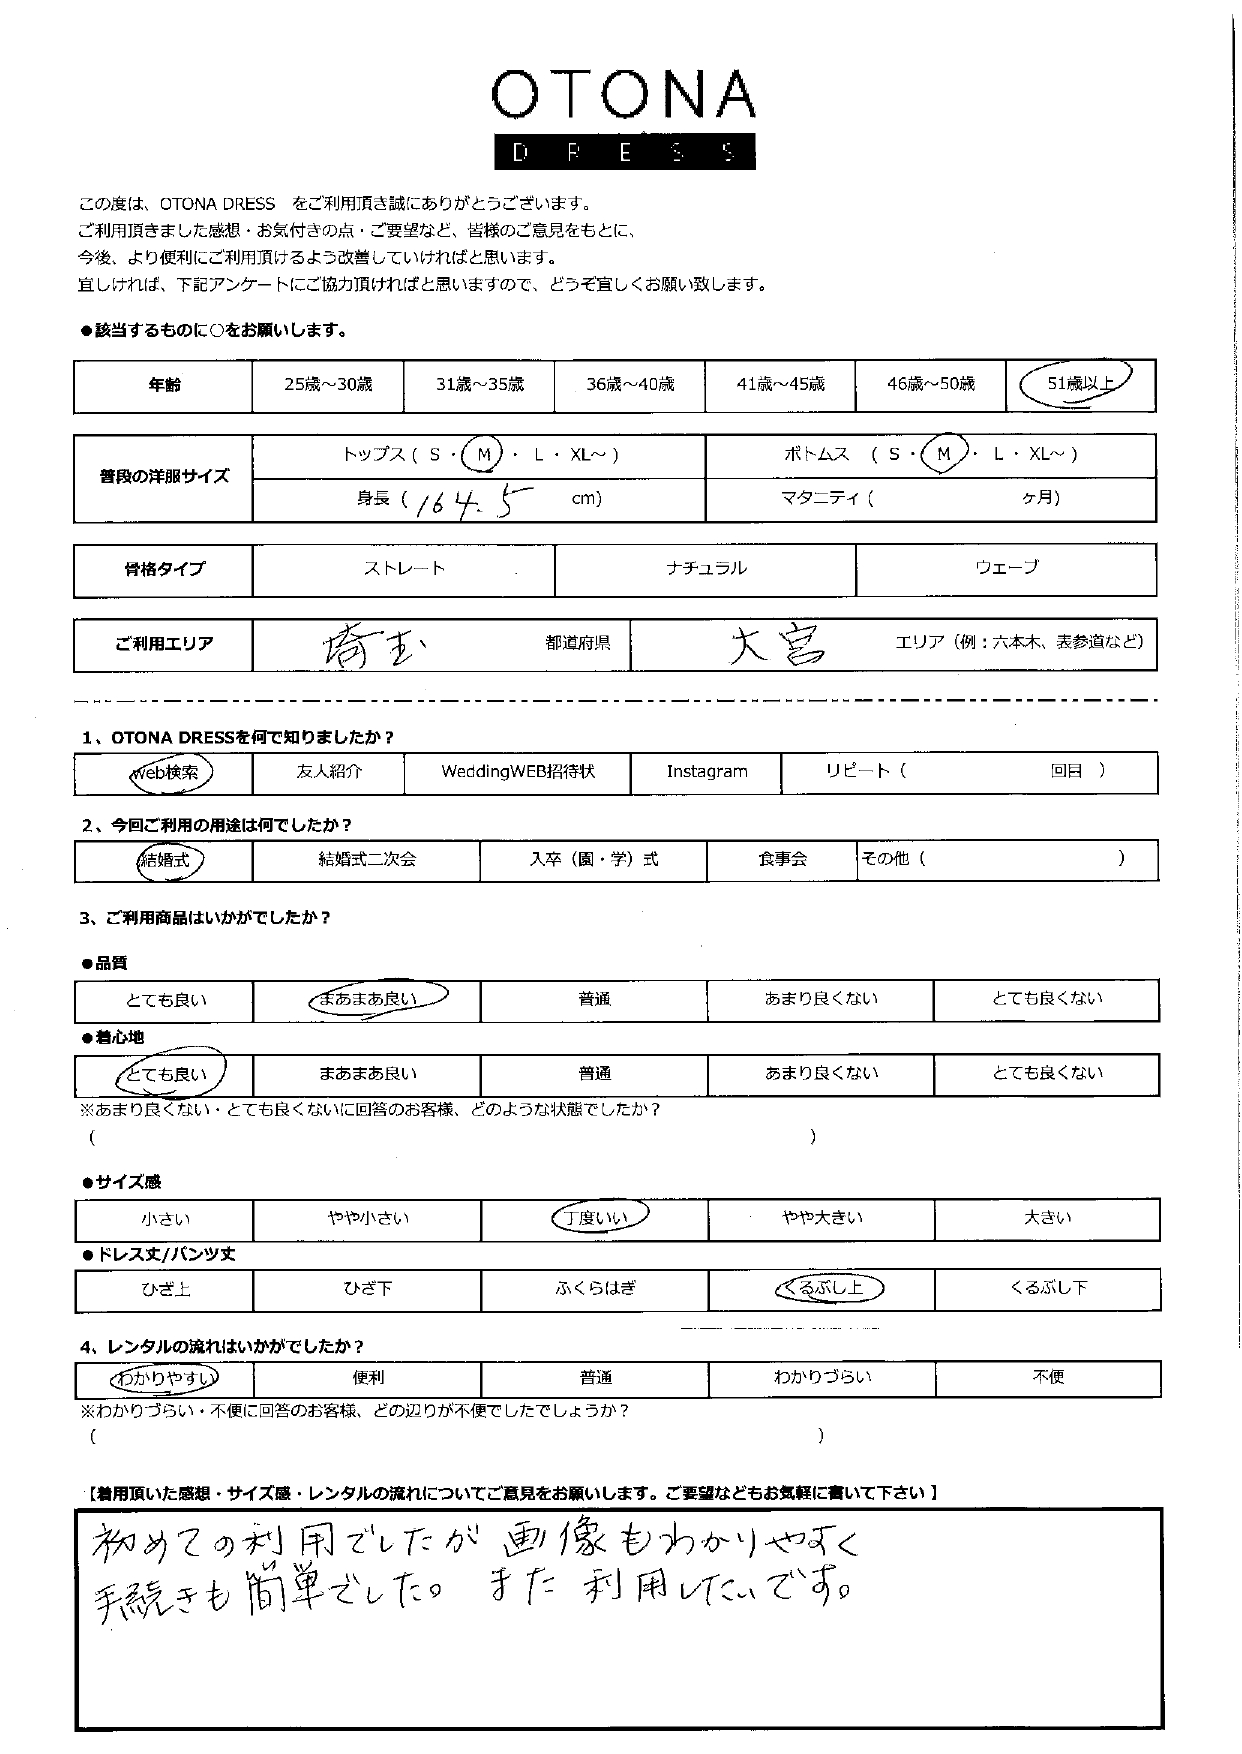 OTONA
DRESS
この度は、OTONA DRESS　をご利用頂き誠にありがとうございます。
ご利用頂きました感想・お気付きの点・ご要望など、皆様のご意見をもとに、
今後、より便利にご利用頂けるよう改善していければと思います。
宜しければ、下記アンケートにご協力頂ければと思いますので、どうぞ宜しくお願い致します。
●該当するものに○をお願いします。
年齢 25歳～30歳 31歳～35歳 36歳～40歳 41歳～45歳 46歳～50歳 51歳以上
普段の洋服サイズ
トップス ( S ・ M ・ L ・ XL～ ) ボトムス ( S ・ M ・ L ・ XL～ )
身長 ( 164.5 cm) マタニティ ( ヶ月)
骨格タイプ ストレート ナチュラル ウェーブ
ご利用エリア 埼玉 都道府県 大宮 エリア（例：六本木、表参道など）
1、OTONA DRESSを何で知りましたか？
Web検索 友人紹介 WeddingWEB招待状 Instagram リピート（ 回目 ）
2、今回ご利用の用途は何でしたか？
結婚式 結婚式二次会 入卒（園・学）式 食事会 その他（ ）
3、ご利用商品はいかがでしたか？
●品質
とても良い まあまあ良い 普通 あまり良くない とても良くない
●着心地
とても良い まあまあ良い 普通 あまり良くない とても良くない
※あまり良くない・とても良くないに回答のお客様、どのような状態でしたか？
( )
●サイズ感
小さい やや小さい 丁度いい やや大きい 大きい
●ドレス丈/パンツ丈
ひざ上 ひざ下 ふくらはぎ くるぶし上 くるぶし下
4、レンタルの流れはいかがでしたか？
わかりやすい 便利 普通 わかりづらい 不便
※わかりづらい・不便に回答のお客様、どの辺りが不便でしたでしょうか？
( )
【着用頂いた感想・サイズ感・レンタルの流れについてご意見をお願いします。ご要望などもお気軽に書いて下さい】
初めての利用でしたが 画像もわかりやすく
手続きも簡単でした。 また 利用したいです。